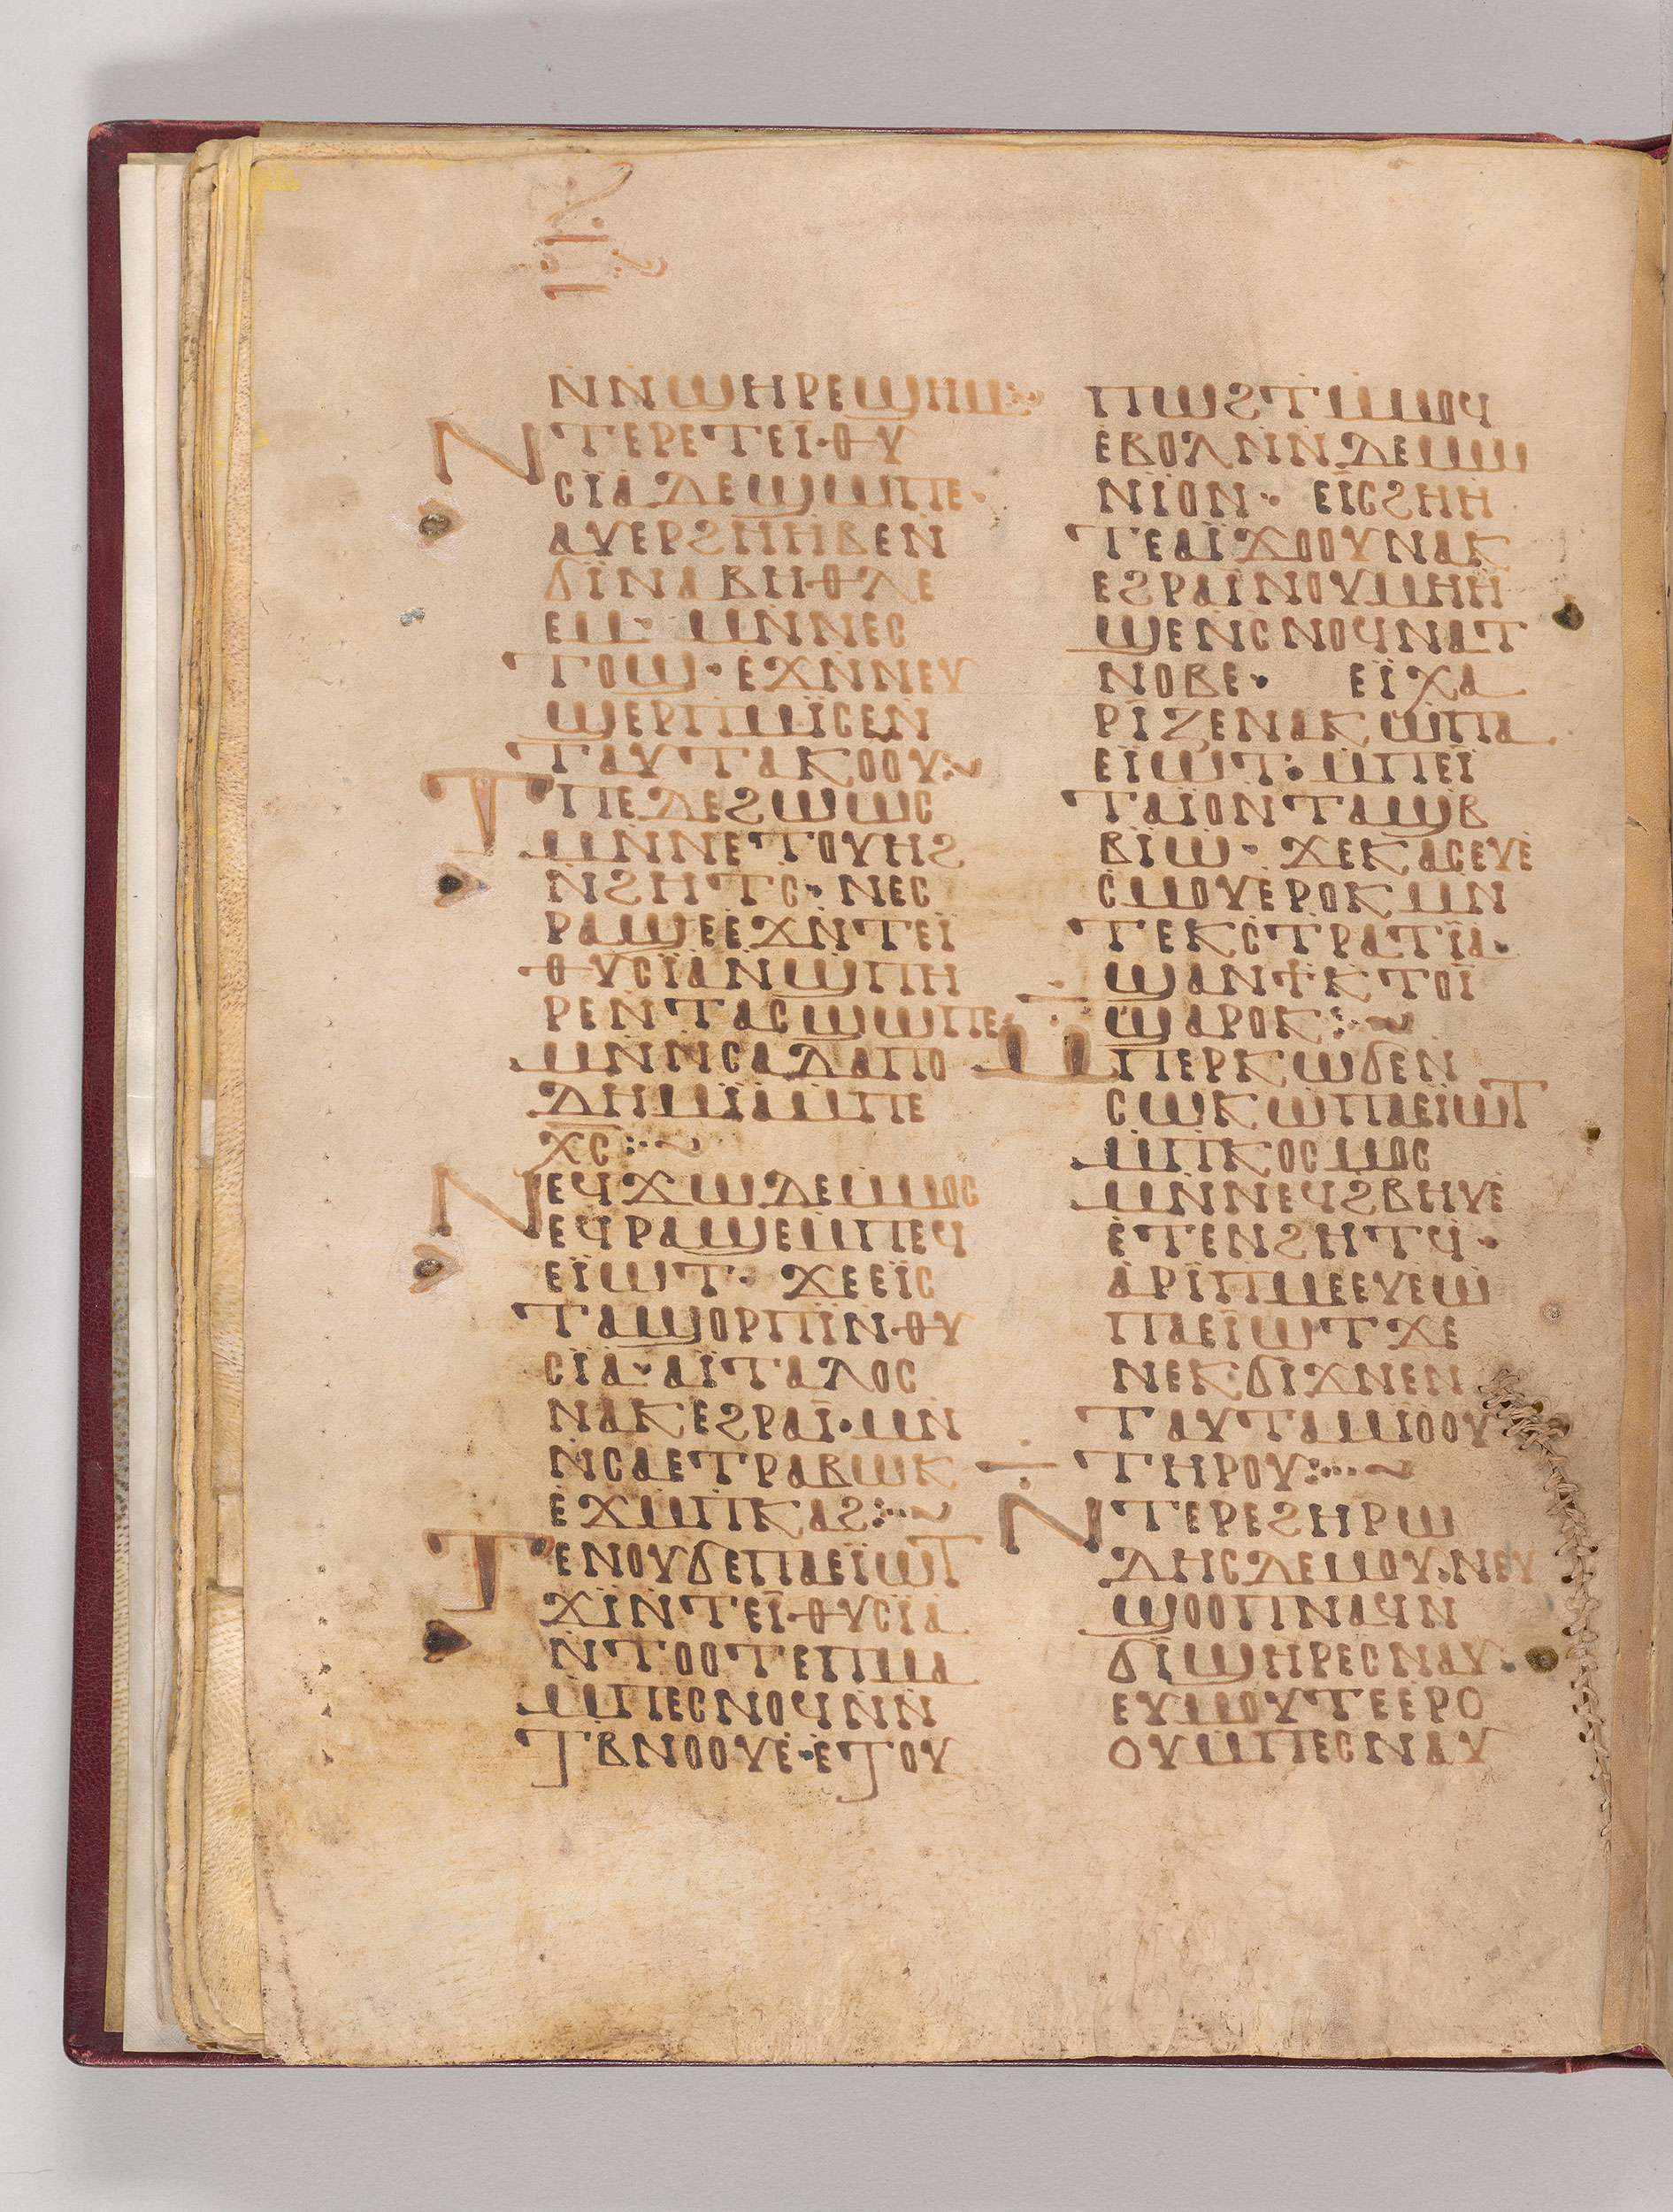 ⲛ̀ⲛ̀ϣⲏⲣⲉϣⲏⲙ:
ⲛⲧⲉⲣⲉⲧⲉⲓ̈·ⲑⲩ
ⲥⲓ̈ⲁ̀ⲇⲉϣⲱⲡⲉ·
ⲁⲩⲉⲣϩⲏⲏⲃⲉⲛ̀
ϭⲓ̈ⲛⲁⲃⲏⲑⲗⲉ
ⲉⲙ· ⲙⲛ̀ⲛⲉⲥ
ⲧⲟϣ·ⲉ̀ϫⲛ̀ⲛⲉⲩ
ϣⲉⲣⲡⲙ̀ⲓ̈ⲥⲉⲛ̀
ⲧⲁⲩⲧⲁⲕⲟⲟⲩ:~
ⲧⲡⲉⲇⲉϩⲱⲱⲥ
ⲙⲛ̀ⲛⲉⲧⲟⲩⲏϩ
ⲛ̀ϩⲏⲧⲥ̀·ⲛⲉⲥ
ⲣⲁϣⲉⲉ̀ϫⲛ̀ⲧⲉⲓ̈
ⲑⲩⲥⲓ̈ⲁⲛ̀ϣⲡⲏ
ⲣⲉⲛ̀ⲧⲁⲥϣⲱⲡⲉ·
ⲙⲛ̀ⲛ̀ⲥⲁⲧⲁⲡⲟ
ⲇⲏⲙⲓ̈ⲁⲙ̀ⲡⲉ
ⲭ̅ⲥ̅:·~
ⲛⲉϥϫⲱⲇⲉⲙ̀ⲙⲟⲥ
ⲉϥⲣⲁϣⲉⲙ̀ⲡⲉϥ
ⲉⲓ̈ⲱⲧ· ϫⲉⲉⲓ̈ⲥ
ⲧⲁϣⲟⲣⲡⲓ̀ⲛ̀ⲑⲩ
ⲥⲓ̈ⲁ·ⲁⲓ̈ⲧⲁⲗⲟⲥ
ⲛⲁⲕⲉϩⲣⲁⲓ̈·ⲙⲛ̀
ⲛ̀ⲥⲁⲉⲧⲣⲁⲃⲱⲕ
ⲉ̀ϫⲙ̀ⲡⲕⲁϩ:·~
ⲧⲉⲛⲟⲩϭⲉⲡⲁⲉⲓ̈ⲱⲧ
ϫⲓ̈ⲛ̀ⲧⲉⲓ̈ⲑⲩⲥⲓ̈ⲁ
ⲛ̀ⲧⲟⲟⲧⲉⲡⲙⲁ
ⲙ̀ⲡⲉⲥⲛⲟϥⲛ̀ⲛ̀
ⲧⲃⲛⲟⲟⲩⲉ̀·ⲉ̀ⲧⲟⲩ
ⲡⲱϩⲧⲙ̀ⲙⲟϥ
ⲉ̀ⲃⲟⲗⲛ̀ⲛ̀ⲇⲉⲙⲱ
ⲛⲓ̀ⲟⲛ· ⲉⲓ̈ⲥϩⲏⲏ
ⲧⲉⲁⲓ̈ϫⲟⲟⲩⲛⲁⲕ
ⲉϩⲣⲁⲓ̈ⲛⲟⲩⲙⲏⲏ̀
ϣⲉⲛ̀ⲥⲛⲟϥⲛⲁⲧ
ⲛⲟⲃⲉ· ⲉⲓ̈ⲭⲁ
ⲣⲓ̈ⲍⲉⲛⲁⲕⲱ̀ⲡⲁ
ⲉⲓ̀ⲱⲧ·ⲙ̀ⲡⲉⲓ̈
ⲧⲁⲓⲟⲛ̀ⲧⲁϣⲃ̀
ⲃⲓ̀ⲱ· ϫⲉⲕⲁⲥⲉⲩⲉ̀
ⲥ̀ⲙⲟⲩⲉⲣⲟⲕⲙⲛ̀
ⲧⲉⲕⲥ̀ⲧⲣⲁⲧⲓ̈ⲁ·
ϣⲁⲛϯⲕⲧⲟⲓ̈
ϣⲁⲣⲟⲕ:·~
ⲙⲡⲉⲣⲕⲱϭⲉⲛ̀
ⲥⲱⲕⲱ̀ⲡⲁⲉⲓ̈ⲱⲧ
ⲙ̀ⲡⲕⲟⲥⲙⲟⲥ
ⲙⲛ̀ⲛⲉϥϩⲃⲏⲩⲉ̀
ⲉ̀ⲧⲉⲛϩⲏⲧϥ̀·
ⲁ̀ⲣⲓ̈ⲡⲙⲉⲉⲩⲉⲱ̀
ⲡⲁⲉⲓ̈ⲱⲧϫⲉ
ⲛⲉⲕϭⲓ̀ϫⲛⲉⲛ̀
ⲧⲁⲩⲧⲁⲙⲓ̀ⲟⲟⲩ
ⲧⲏⲣⲟⲩ:·~
ⲛⲧⲉⲣⲉϩⲏⲣⲱ
ⲇⲏⲥⲇⲉⲙⲟⲩ·ⲛⲉⲩ
ϣⲟⲟⲡⲛⲁϥⲛ̀
ϭⲓ̀ϣⲏⲣⲉⲥⲛⲁⲩ·
ⲉⲩⲙⲟⲩⲧⲉⲉⲣⲟ
ⲟⲩⲙ̀ⲡⲉⲥⲛⲁⲩ